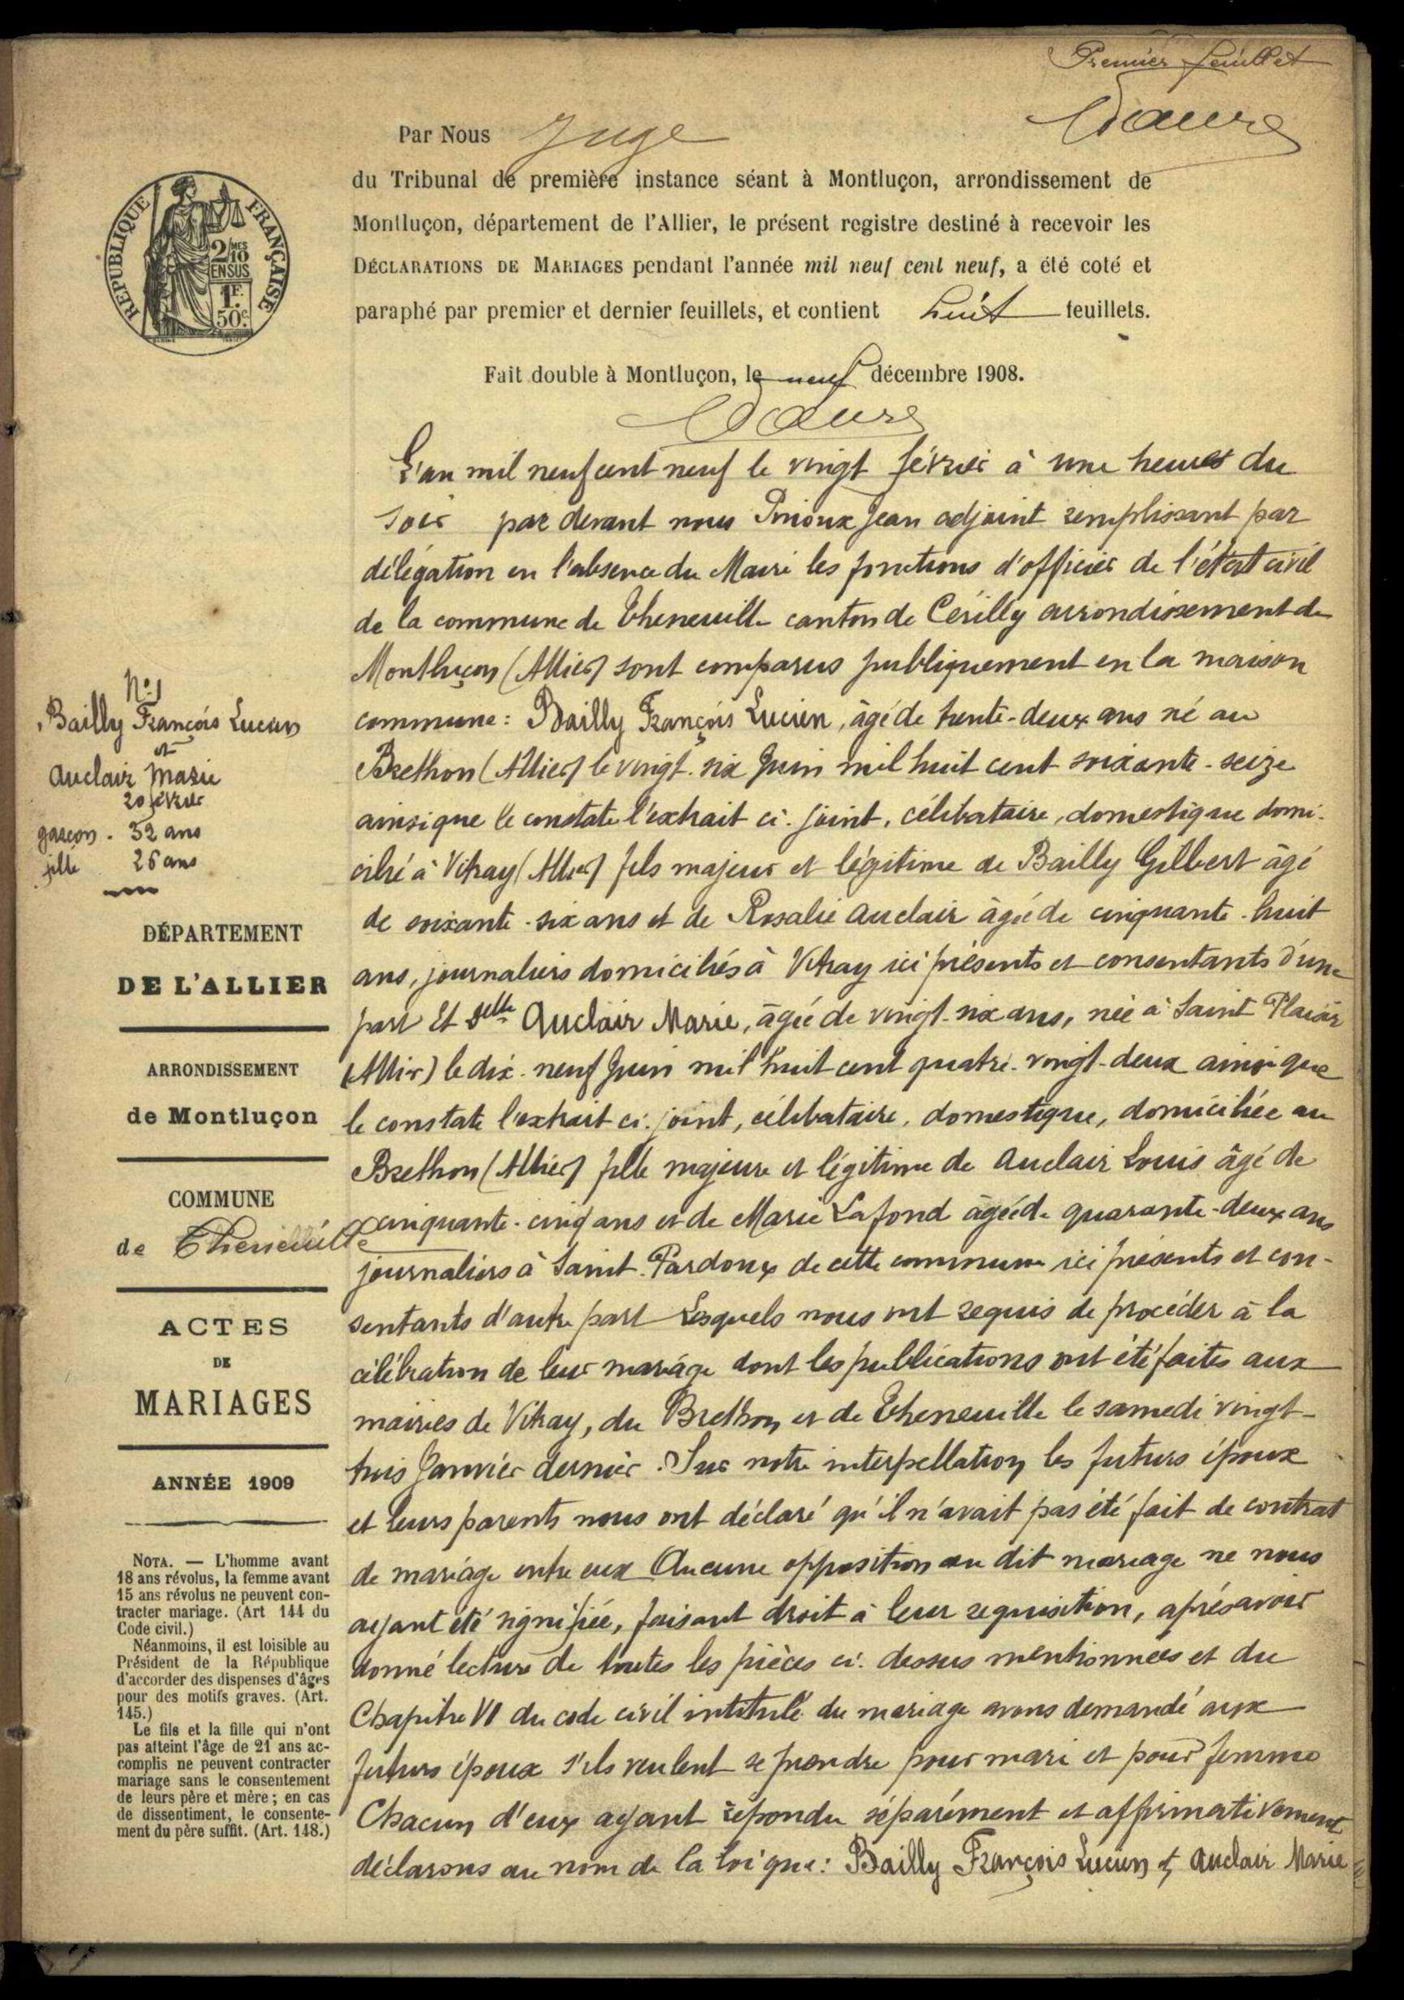 Premier feuillet
Par Nous Juge
du Tribunal de première instance séant à Montluçon, arrondissement de
Montluçon, département de l'Allier, le présent registre destiné à recevoir les
DÉCLARATIONS DE MARIAGES pendant l'année mil neuf cent neuf, a été coté et
paraphé par premier et dernier feuillets, et contient huit feuillets.
Fait double à Montluçon, le neuf décembre 1908.
RÉPUBLIQUE FRANÇAISE
2/10 MES
EN SUS
1 F.
50 c.
L'an mil neuf cent neuf le vingt février à une heures du
soir par devant nous Perioux Jean adjoint remplissant par
délégation en l'absence du Maire les fonctions d'officier de l'état civil
de la commune de Theneuille canton de Cérilly arrondissement de
Montluçon (Allier) sont comparus publiquement en la maison
commune : Bailly François Lucien, âgé de trente-deux ans né au
Brethon (Allier) le vingt-six Juin mil huit cent soixante-seize
ainsi que le constate l'extrait ci-joint, célibataire, domestique domi-
cilié à Vitray (Allier) fils majeur et légitime de Bailly Gilbert âgé
de soixante-six ans et de Rosalie Auclair âgée de cinquante-huit
ans, journaliers domiciliés à Vitray ici présents et consentants d'une
part Et Delle Auclair Marie, âgée de vingt-six ans, née à Saint Plaisir
(Allier) le dix-neuf Juin mil huit cent quatre-vingt-deux ainsi que
le constate l'extrait ci-joint, célibataire, domestique, domiciliée au
Brethon (Allier) fille majeure et légitime de Auclair Louis âgé de
cinquante-cinq ans et de Marie Lafond âgée de quarante-deux ans
journaliers à Saint-Pardoux de cette commune ici présents et con-
sentants d'autre part Lesquels nous ont requis de procéder à la
célébration de leur mariage dont les publications ont été faites aux
mairies de Vitray, du Brethon et de Theneuille le samedi vingt-
trois Janvier dernier. Sur notre interpellation les futurs époux
et leurs parents nous ont déclaré qu'il n'avait pas été fait de contrat
de mariage entre eux Aucune opposition au dit mariage ne nous
ayant été signifiée, faisant droit à leur requisition, après avoir
donné lecture de toutes les pièces ci-dessus mentionnées et du
Chapitre VI du code civil intitulé du mariage avons demandé aux
futurs époux s'ils veulent se prendre pour mari et pour femme
Chacun d'eux ayant répondu séparément et affirmativement
déclarons au nom de la loi que : Bailly François Lucien et Auclair Marie
N° 1
Bailly François Lucien
et
Auclair Marie
20 février
garçon - 32 ans
fille 26 ans
DÉPARTEMENT
DE L'ALLIER
ARRONDISSEMENT
de Montluçon
COMMUNE
de Theneuille
ACTES
DE
MARIAGES
ANNÉE 1909
NOTA. — L'homme avant
18 ans révolus, la femme avant
15 ans révolus ne peuvent con-
tracter mariage. (Art 144 du
Code civil.)
Néanmoins, il est loisible au
Président de la République
d'accorder des dispenses d'âges
pour des motifs graves. (Art.
145.)
Le fils et la fille qui n'ont
pas atteint l'âge de 21 ans ac-
complis ne peuvent contracter
mariage sans le consentement
de leurs père et mère ; en cas
de dissentiment, le consente-
ment du père suffit. (Art. 148.)